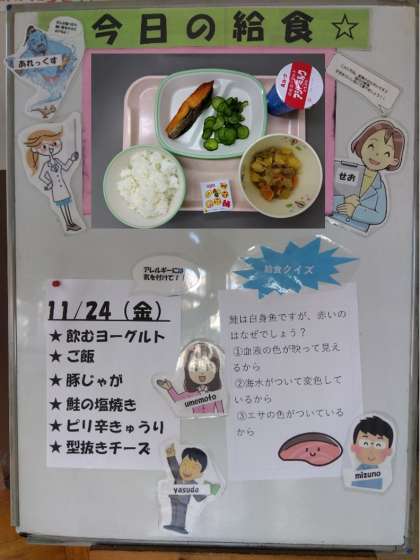 今日の給食☆
あれっくす
せお
アレルギーには
気を付けて！
給食クイズ
11/24（金）
★ 飲むヨーグルト
★ ご飯
★ 豚じゃが
★ 鮭の塩焼き
★ ピリ辛きゅうり
★ 型抜きチーズ
鮭は白身魚ですが、赤いの
はなぜでしょう？
①血液の色が映って見え
るから
②海水がついて変色して
いるから
③エサの色がついている
から
umemoto
yasuda
mizuno